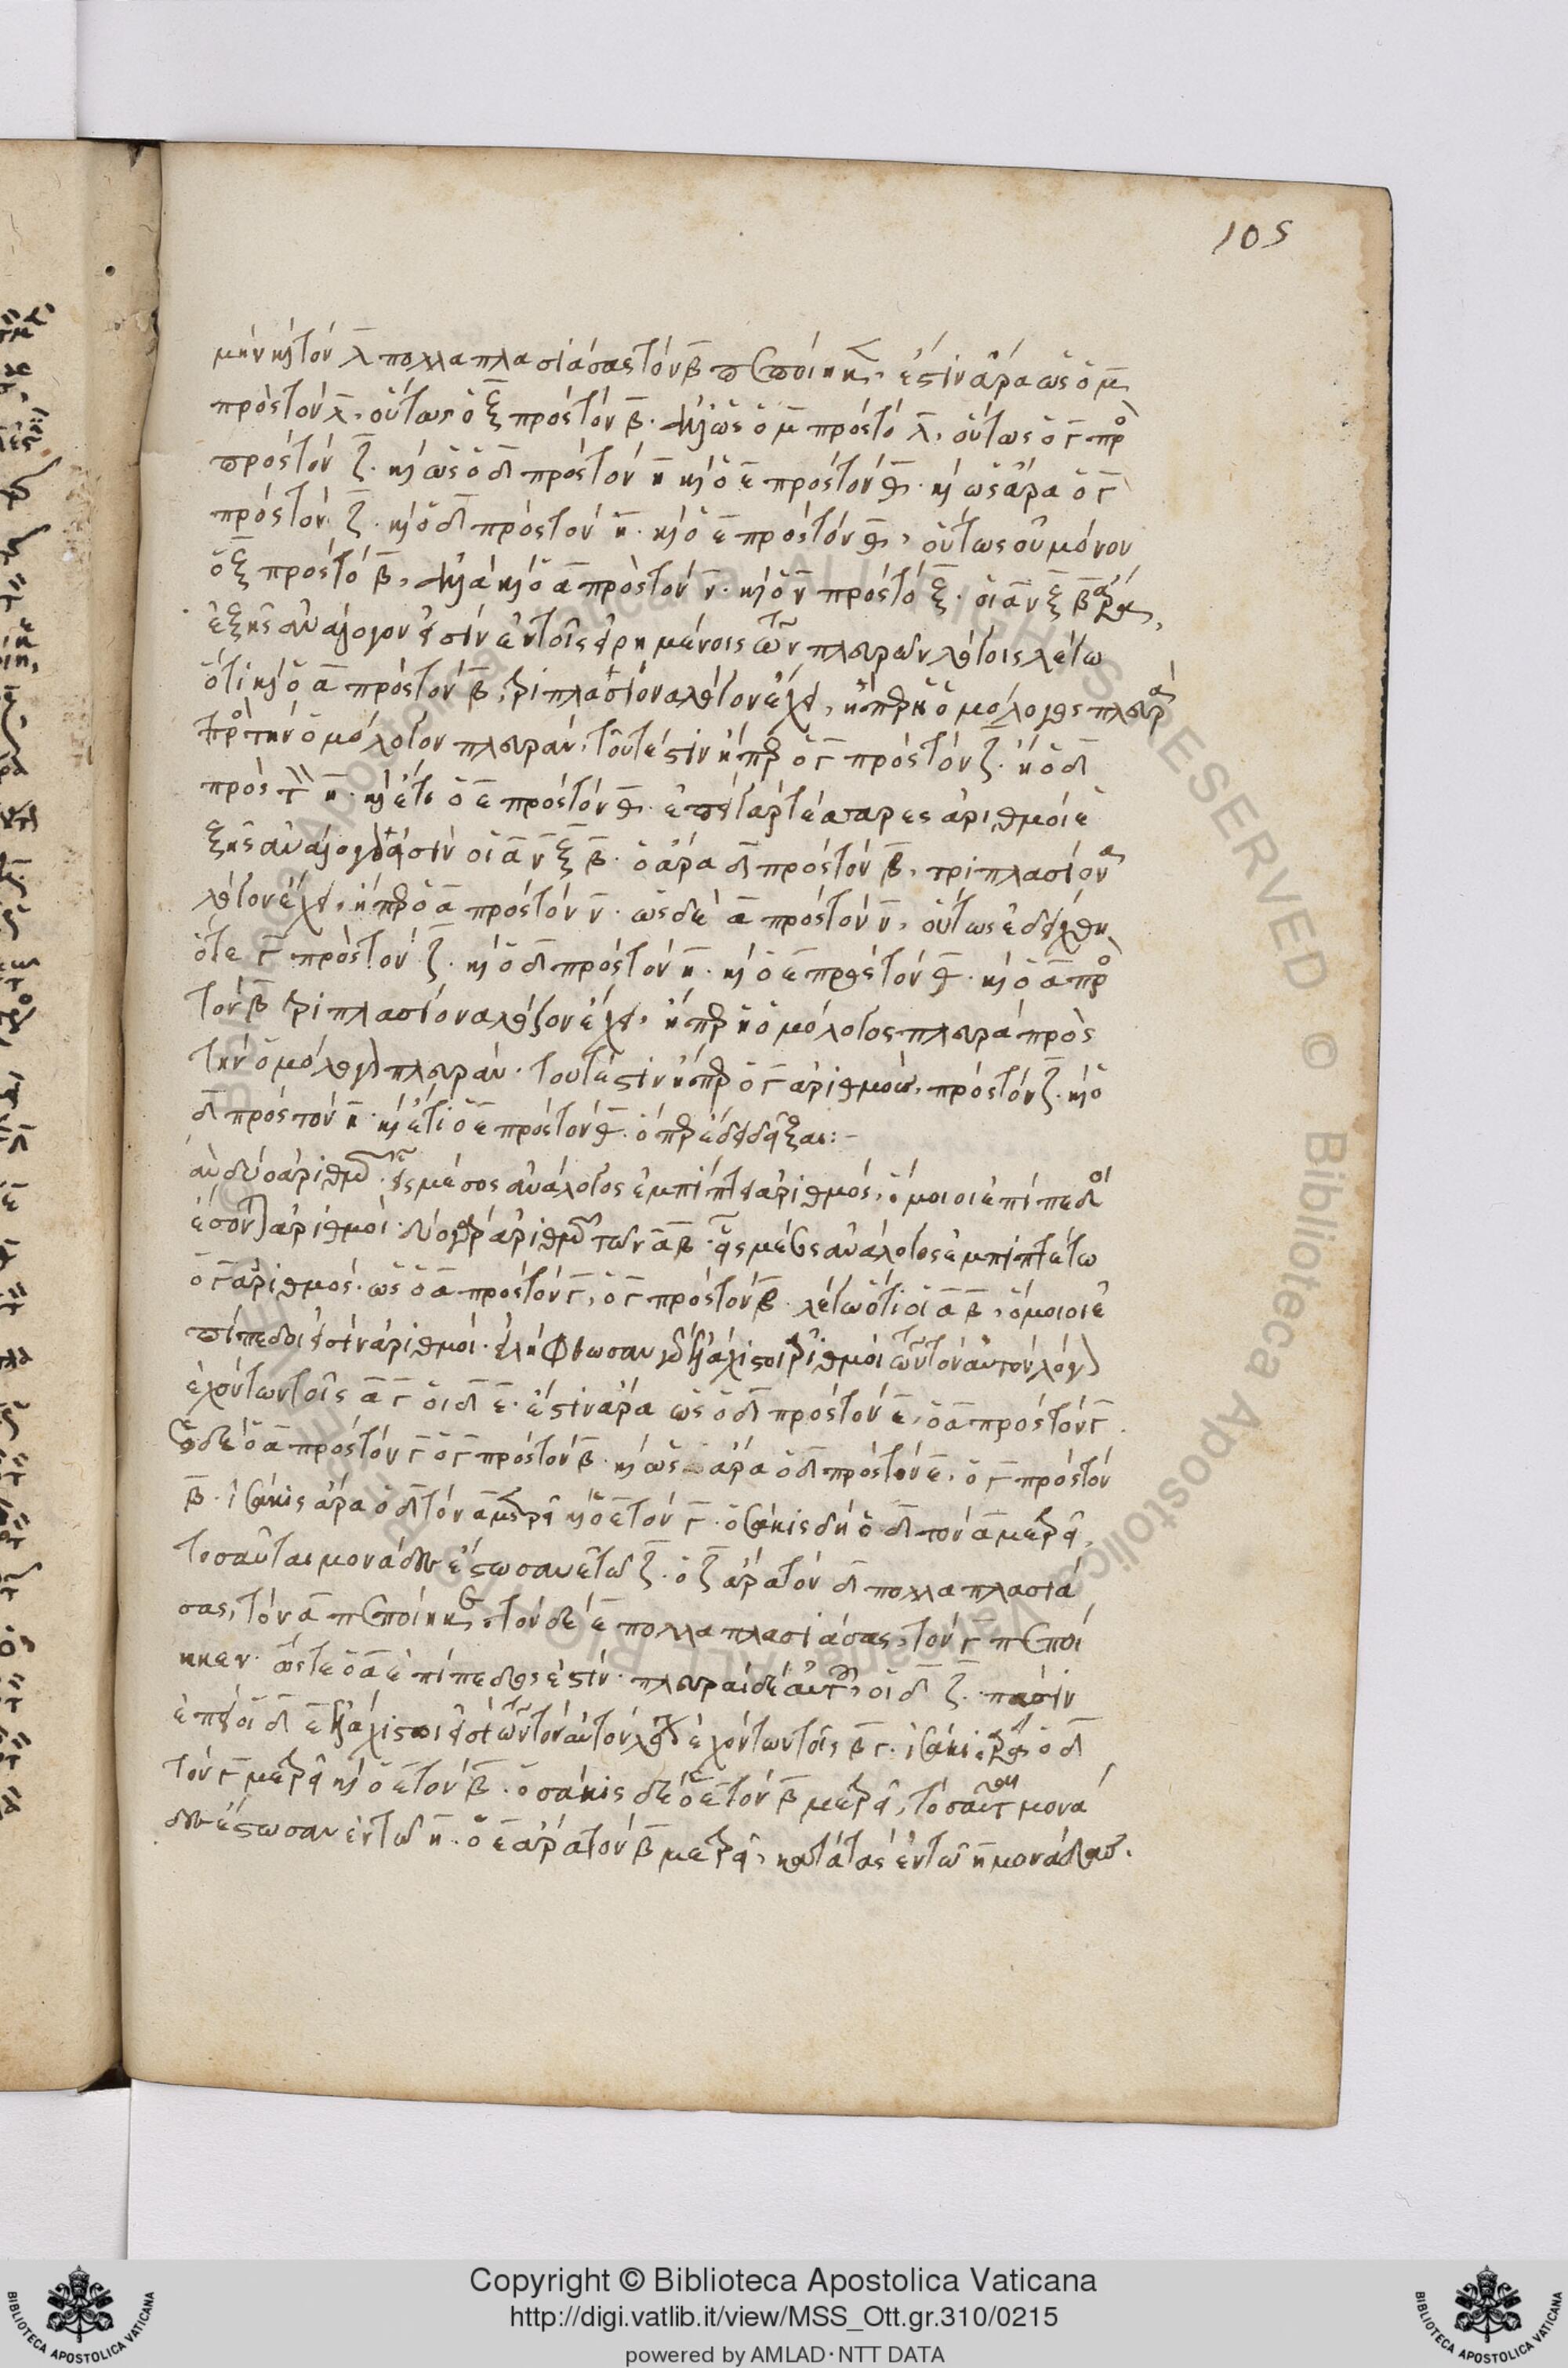 105
μὴν κ̣ τὸν λ̅ πολλαπλασιάσας τὸν β̅ πεποίηκε. ἔστιν ἄρα ὡς ὁ μ̅
πρὸς τὸν λ̅, οὕτως ὁ ξ̅ πρὸς τὸν β̅. ἀλλ' ὡς ὁ μ̅ πρὸς τὸ λ̅, οὕτως ὁ γ̅ πρὸ
πρὸς τὸν ζ̅. καὶ ὡς ὁ δ̅ πρὸς τὸν η̅ καὶ ὁ ε̅ πρὸς τὸν θ̅. καὶ ὡς ἄρα ὁ γ̅
πρὸς τὸν ζ̅. καὶ ὁ δ̅ πρὸς τὸν η̅. καὶ ὁ ε̅ πρὸς τὸν θ̅, οὕτως οὐ μόνον
ὁ ξ̅ πρὸς τὸ β̅, ἀλλὰ καὶ ὁ α̅ πρὸς τὸν ν̅. καὶ ὁ ν̅ πρὸς τὸ ξ̅. οἱ α̅ ν̅ ξ̅ β̅ ἄρα
ἑξῆς ἀνάλογόν εἰσιν ἐν τοῖς εἰρημένοις τῶν πλευρῶν λόγοις λέγω
ὅτι καὶ ὁ α̅ πρὸς τὸν β̅, τριπλασίονα λόγον ἔχει, ἤπερ ἡ ὁμόλογος πλευρὰ
πρὸ τὴν ὁμόλογον πλευράν, τουτέστιν ἤπερ ὁ γ̅ πρὸς τὸν ζ̅. ἢ ὁ δ̅
πρὸς τὸν η̅. καὶ ἔτι ὁ ε̅ πρὸς τὸν θ̅. ἐπεὶ γὰρ τέσσαρες ἀριθμοὶ ἑ
ξῆς ἀνάλογόν εἰσιν οἱ α̅ ν̅ ξ̅ β̅. ὁ ἄρα δ̅ πρὸς τὸν β̅, τριπλασίονα
λόγον ἔχει, ἤπερ ὁ α̅ πρὸς τὸν ν̅. ὡς δὲ α̅ πρὸς τὸν ν̅, οὕτως ἐδείχθη
ὅτε γ̅ πρὸς τὸν ζ̅. καὶ ὁ δ̅ πρὸς τὸν η̅. καὶ ὁ ε̅ πρὸς τὸν θ̅. καὶ ὁ α̅ πρὸ
τὸν β̅ τριπλασίονα λόγον ἔχει, ἤπερ ἡ ὁμόλογος πλευρὰ πρὸς
τὴν ὁμόλογον πλευράν. τουτέστιν ἤπερ ὁ γ̅ ἀριθμὸς, πρὸς τὸν ζ̅. καὶ ὁ
δ̅ πρὸς τὸν η̅. καὶ ἔτι ὁ ε̅ πρὸς τὸν θ̅. ὅπερ ἔδει δεῖξαι:-
ἂν δύο ἀριθμῶν εἷς μέσος ἀνάλογος ἐμπίπτει ἀριθμός, ὅμοιοι ἐπίπεδοι
ἔσονται ἀριθμοί. δύο γὰρ ἀριθμῶν τῶν α̅ β̅. εἷς μέσος ἀνάλογος ἐμπιπτέτω
ὁ γ̅ ἀριθμός. ὡς ὁ α̅ πρὸς τὸν γ̅, ὁ γ̅ πρὸς τὸν β̅. λέγω ὅτι οἱ α̅ β̅, ὅμοιοι ἐ
πίπεδοί εἰσιν ἀριθμοί. εἰλήφθωσαν γὰρ ἐλάχιστοι ἀριθμοὶ τῶν τὸν αὐτὸν λόγον
ἐχόντων τοῖς α̅ γ̅ οἱ δ̅ ε̅. ἔστιν ἄρα ὡς ὁ δ̅ πρὸς τὸν ε̅, ὁ α̅ πρὸς τὸν γ̅.
ὡς δὲ ὁ α̅ πρὸς τὸν γ̅ ὁ γ̅ πρὸς τὸν β̅. καὶ ὡς ἄρα ὁ δ̅ πρὸς τὸν ε̅, ὁ γ̅ πρὸς τὸν
β̅. ἰσάκις ἄρα ὁ δ̅ τὸν α̅ μετρεῖ καὶ ὁ ε̅ τὸν γ̅. ὁσάκις δὴ ὁ δ̅ τὸν α̅ μετρεῖ,
τοσαῦται μονάδες ἔστωσαν ἐν τῷ ζ̅. ὁ ζ̅ ἄρα τὸν δ̅ πολλαπλασιά
σας, τὸν α̅ πεποίηκε, τὸν δὲ ε̅ πολλαπλασιάσας, τὸν γ̅ πεποί
ηκεν. ὥστε ὁ α̅ ἐπίπεδος ἐστίν. πλευραὶ δὲ αὐτοῦ, οἱ δ̅ ζ̅. πασιν
ἐπεὶ οἱ δ̅ ε̅ ἐλάχιστοι εἰσὶ τῶν τὸν αὐτὸν λόγον ἐχόντων τοῖς β̅ γ̅. ἰσάκις ἄρα ὁ δ̅
τὸν γ̅ μετρεῖ καὶ ὁ ε̅ τὸν β̅. ὁσάκις δὲ ὁ ε̅ τὸν β̅ μετρεῖ, τοσαῦται μονά
δες ἔστωσαν ἐν τῷ η̅. ὁ ε̅ ἄρα τὸν β̅ μετρεῖ, κατὰ τὰς ἐν τῷ η̅ μονάδας.
Copyright © Biblioteca Apostolica Vaticana
http://digi.vatlib.it/view/MSS_Ott.gr.310/0215
powered by AMLAD·NTT DATA